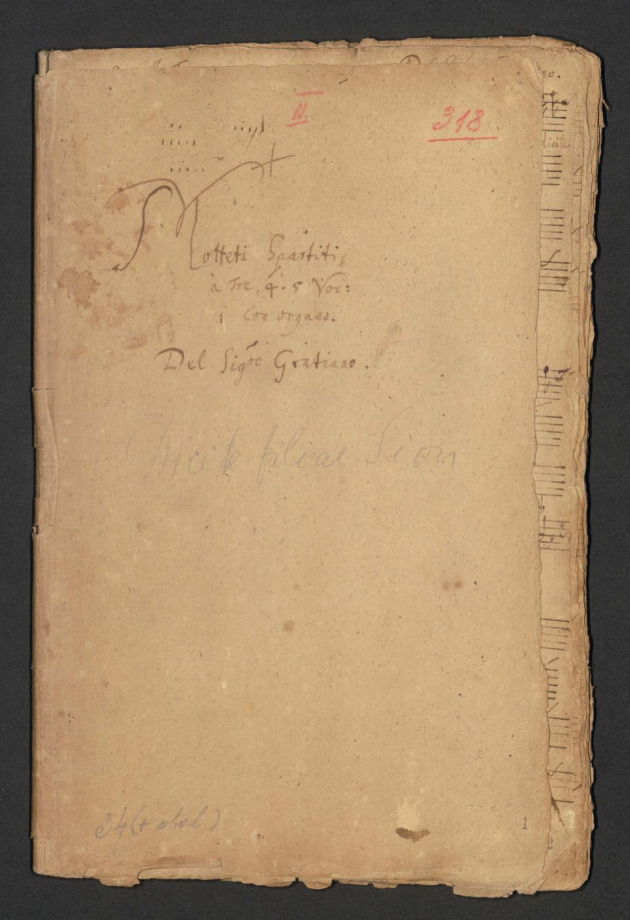 II.
318.
Motteti Spartiti,
à Tre, 4. 5 Voc:
Con organo.
Del Sigre Gratiano.
Dicite filiae Sion
1